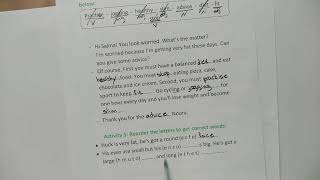 below:
practise - healthy - diet - advice - fit
- Hi Salma! You look worried. What's the matter?
I'm worried because I'm getting very fat these days. Can you give some advice?
- Of course. First you must have a balanced diet and eat
healthy food. You must stop eating pizza, cake
chocolate and ice cream. Second, you must practise
sport to keep fit. Go cycling or jogging
one hour every day and you'll lose weight and become
slim
Thank you for the advice Noura.
Activity 5: Reorder the letters to get correct words
Huck is very fat, he's got a round (e c f a) face
His eyes are small but his (e n s o) is big. He's got a
large (h m u t o) and long (e t h e t)